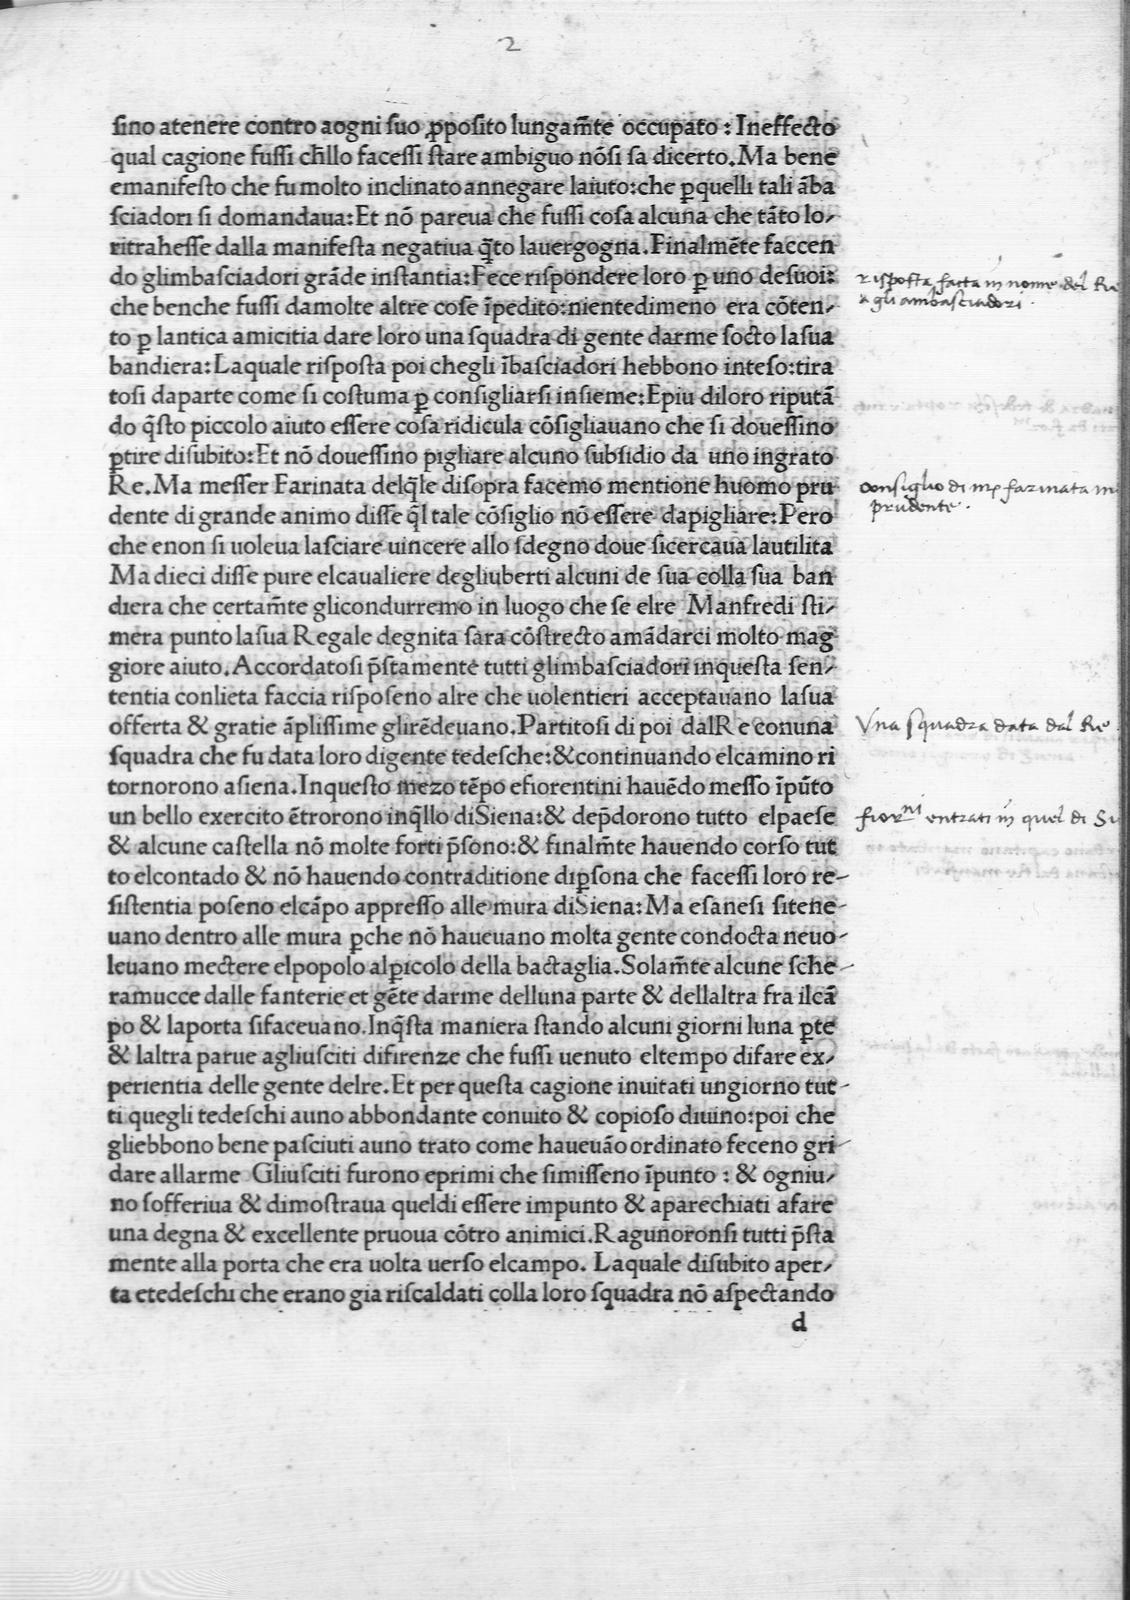 2
ſino atenere contro aogni ſuo ꝓpoſito lungam̃te occupato : Ineffecto
qual cagione fuſſi ch̃llo faceſſi ſtare ambiguo nõſi ſa dicerto. Ma bene
emanifeſto che fu molto inclinato annegare laiuto: che ꝑquelli tali ãba
ſciadori ſi domandaua: Et nõ pareua che fuſſi coſa alcuna che tãto lo⸗
ritraheſſe dalla manifeſta negatiua q̃to lauergogna. Finalmẽte faccen
do glimbaſciadori grãde inſtantia: Fece riſpondere loro ꝑ uno deſuoi:
che benche fuſſi damolte altre coſe ĩpedito: nientedimeno era cõten⸗
to ꝑ lantica amicitia dare loro una ſquadra di gente darme ſocto laſua
bandiera: Laquale riſpoſta poi chegli ĩbaſciadori hebbono inteſo: tira
toſi daparte come ſi coſtuma ꝑ conſigliarſi inſieme: Epiu diloro riputã
do q̃ſto piccolo aiuto eſſere coſa ridicula cõſigliauano che ſi doueſſino
ꝑtire diſubito: Et nõ doueſſino pigliare alcuno ſubſidio da uno ingrato
Re. Ma meſſer Farinata delq̃le diſopra facemo mentione huomo pru
dente di grande animo diſſe q̃l tale cõſiglio nõ eſſere dapigliare: Pero
che enon ſi uoleua laſciare uincere allo ſdegno doue ſicercaua lautilita
Ma dieci diſſe pure elcaualiere degliuberti alcuni de ſua colla ſua ban
diera che certam̃te glicondurremo in luogo che ſe elre Manfredi ſti⸗
mera punto laſua Regale degnita ſara cõſtrecto amãdarci molto mag
giore aiuto. Accordatoſi p̃ſtamente tutti glimbaſciadori inqueſta ſen⸗
tentia conlieta faccia riſpoſeno alre che uolentieri acceptauano laſua
offerta & gratie ãpliſſime glirẽdeuano. Partitoſi di poi dalRe conuna
ſquadra che fu data loro digente tedeſche: & continuando elcamino ri
tornorono aſiena. Inqueſto mezo tẽpo efiorentini hauẽdo meſſo ĩpũto
un bello exercito ẽtrorono inq̃llo diSiena: & dep̃dorono tutto elpaeſe
& alcune caſtella nõ molte forti p̃ſono: & finalm̃te hauendo corſo tut
to elcontado & nõ hauendo contraditione diꝑſona che faceſſi loro re⸗
ſiſtentia poſeno elcãpo appreſſo alle mura diSiena: Ma eſaneſi ſitene⸗
uano dentro alle mura ꝑche nõ haueuano molta gente condocta neuo⸗
leuano mectere elpopolo alꝑicolo della bactaglia. Solam̃te alcune ſche⸗
ramucce dalle fanterie et gẽte darme delluna parte & dellaltra fra ilcã
po & laporta ſifaceuano. Inq̃ſta maniera ſtando alcuni giorni luna ꝑte
& laltra parue agliuſciti difirenze che fuſſi uenuto eltempo difare ex⸗
perientia delle gente delre. Et per queſta cagione inuitati ungiorno tut⸗
ti quegli tedeſchi auno abbondante conuito & copioſo diuino: poi che
gliebbono bene paſciuti auno trato come haueuão ordinato feceno gri⸗
dare allarme Gliuſciti furono eprimi che ſimiſſeno ĩpunto : & ogniu⸗
no ſofferiua & dimoſtraua queldi eſſere impunto & aparechiati afare
una degna & excellente pruoua cõtro animici. Ragunoronſi tutti p̃ſta
mente alla porta che era uolta uerſo elcampo. Laquale diſubito aper⸗
ta etedeſchi che erano gia riſcaldati colla loro ſquadra nõ aſpectando
d
risposta facta in nome del Re
a gli ambasciadori.
consiglio di mꝑ farinata
prudente.
Vna squadra data dal Re
fior.ni entrati in quel di Si